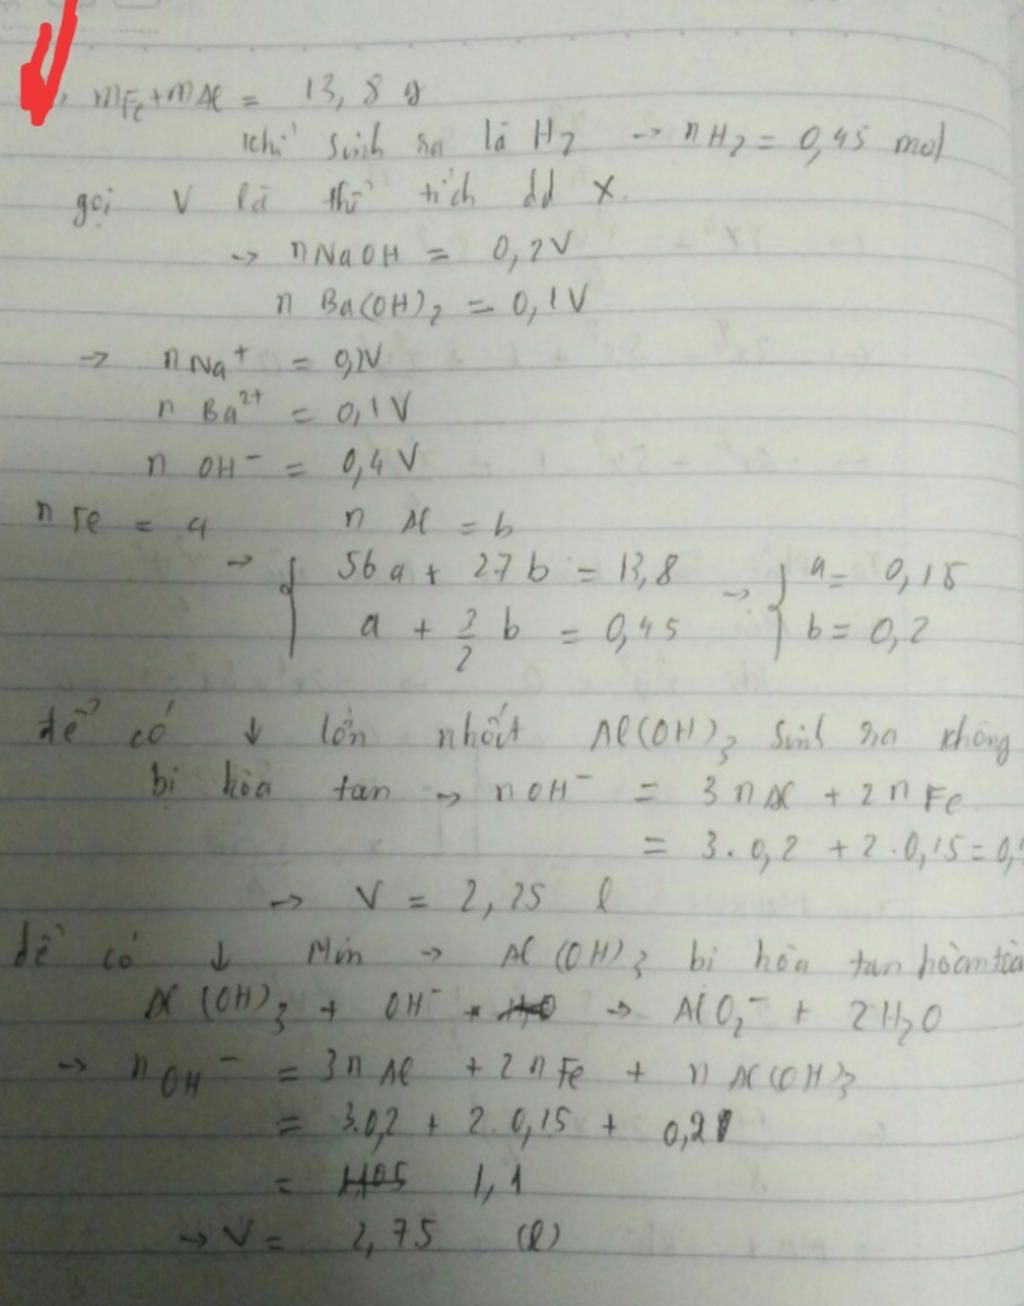 mFe + mAl = 13,8 g
khí sinh ra là H2 → nH2 = 0,45 mol
gọi V là thể tích dd X.
→ nNaOH = 0,2V
n Ba(OH)2 = 0,1V
→ nNa+ = 0,2V
n Ba2+ = 0,1V
n OH- = 0,4V
nFe = a n Al = b
→ { 56a + 27b = 13,8 → { a = 0,15
a + 3/2 b = 0,45 b = 0,2
để có ↓ lớn nhất Al(OH)3 sinh ra không
bị hòa tan → nOH- = 3nAl + 2nFe
= 3.0,2 + 2.0,15 = 0,
→ V = 2,25 l
để có ↓ Min → Al(OH)3 bị hòa tan hoàn
Al(OH)3 + OH- → AlO2- + 2H2O
→ nOH- = 3nAl + 2nFe + nAl(OH)3
= 3.0,2 + 2.0,15 + 0,2
= 1,1
→ V = 2,75 (l)